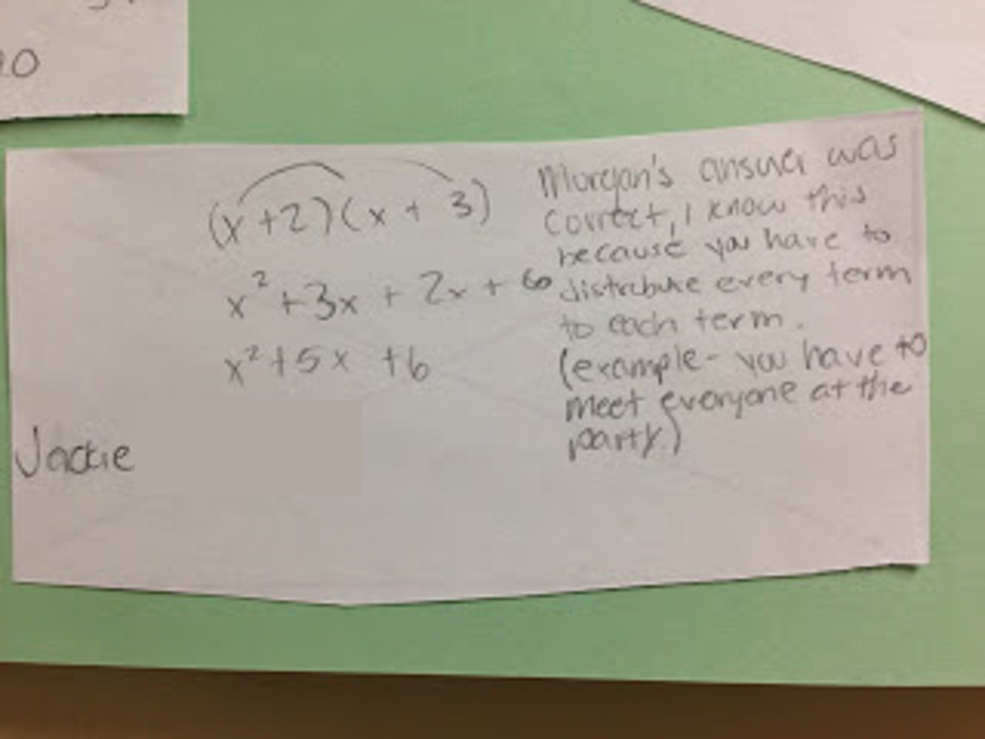 (x + 2)(x + 3)
x² + 3x + 2x + 6
x² + 5x + 6
Jackie
Morgan's answer was
correct, I know this
because you have to
distribute every term
to each term.
(example - you have to
meet everyone at the
party.)